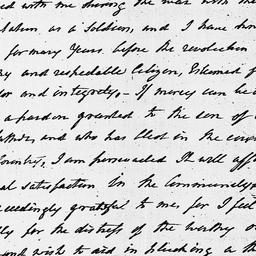 ed with me during the war with the
tation as a Soldier, and I have
for many Years before the revolution
ry and respectable Citizen, Esteemed f
or and integrity,- If mercy can be
a pardon granted to the son of
and who has bled in the
Country, I am persuaded It will aff
al satisfaction In the Community
ceedingly grateful to me, for I feel
ly for the distress of the worthy
and wish to aid in